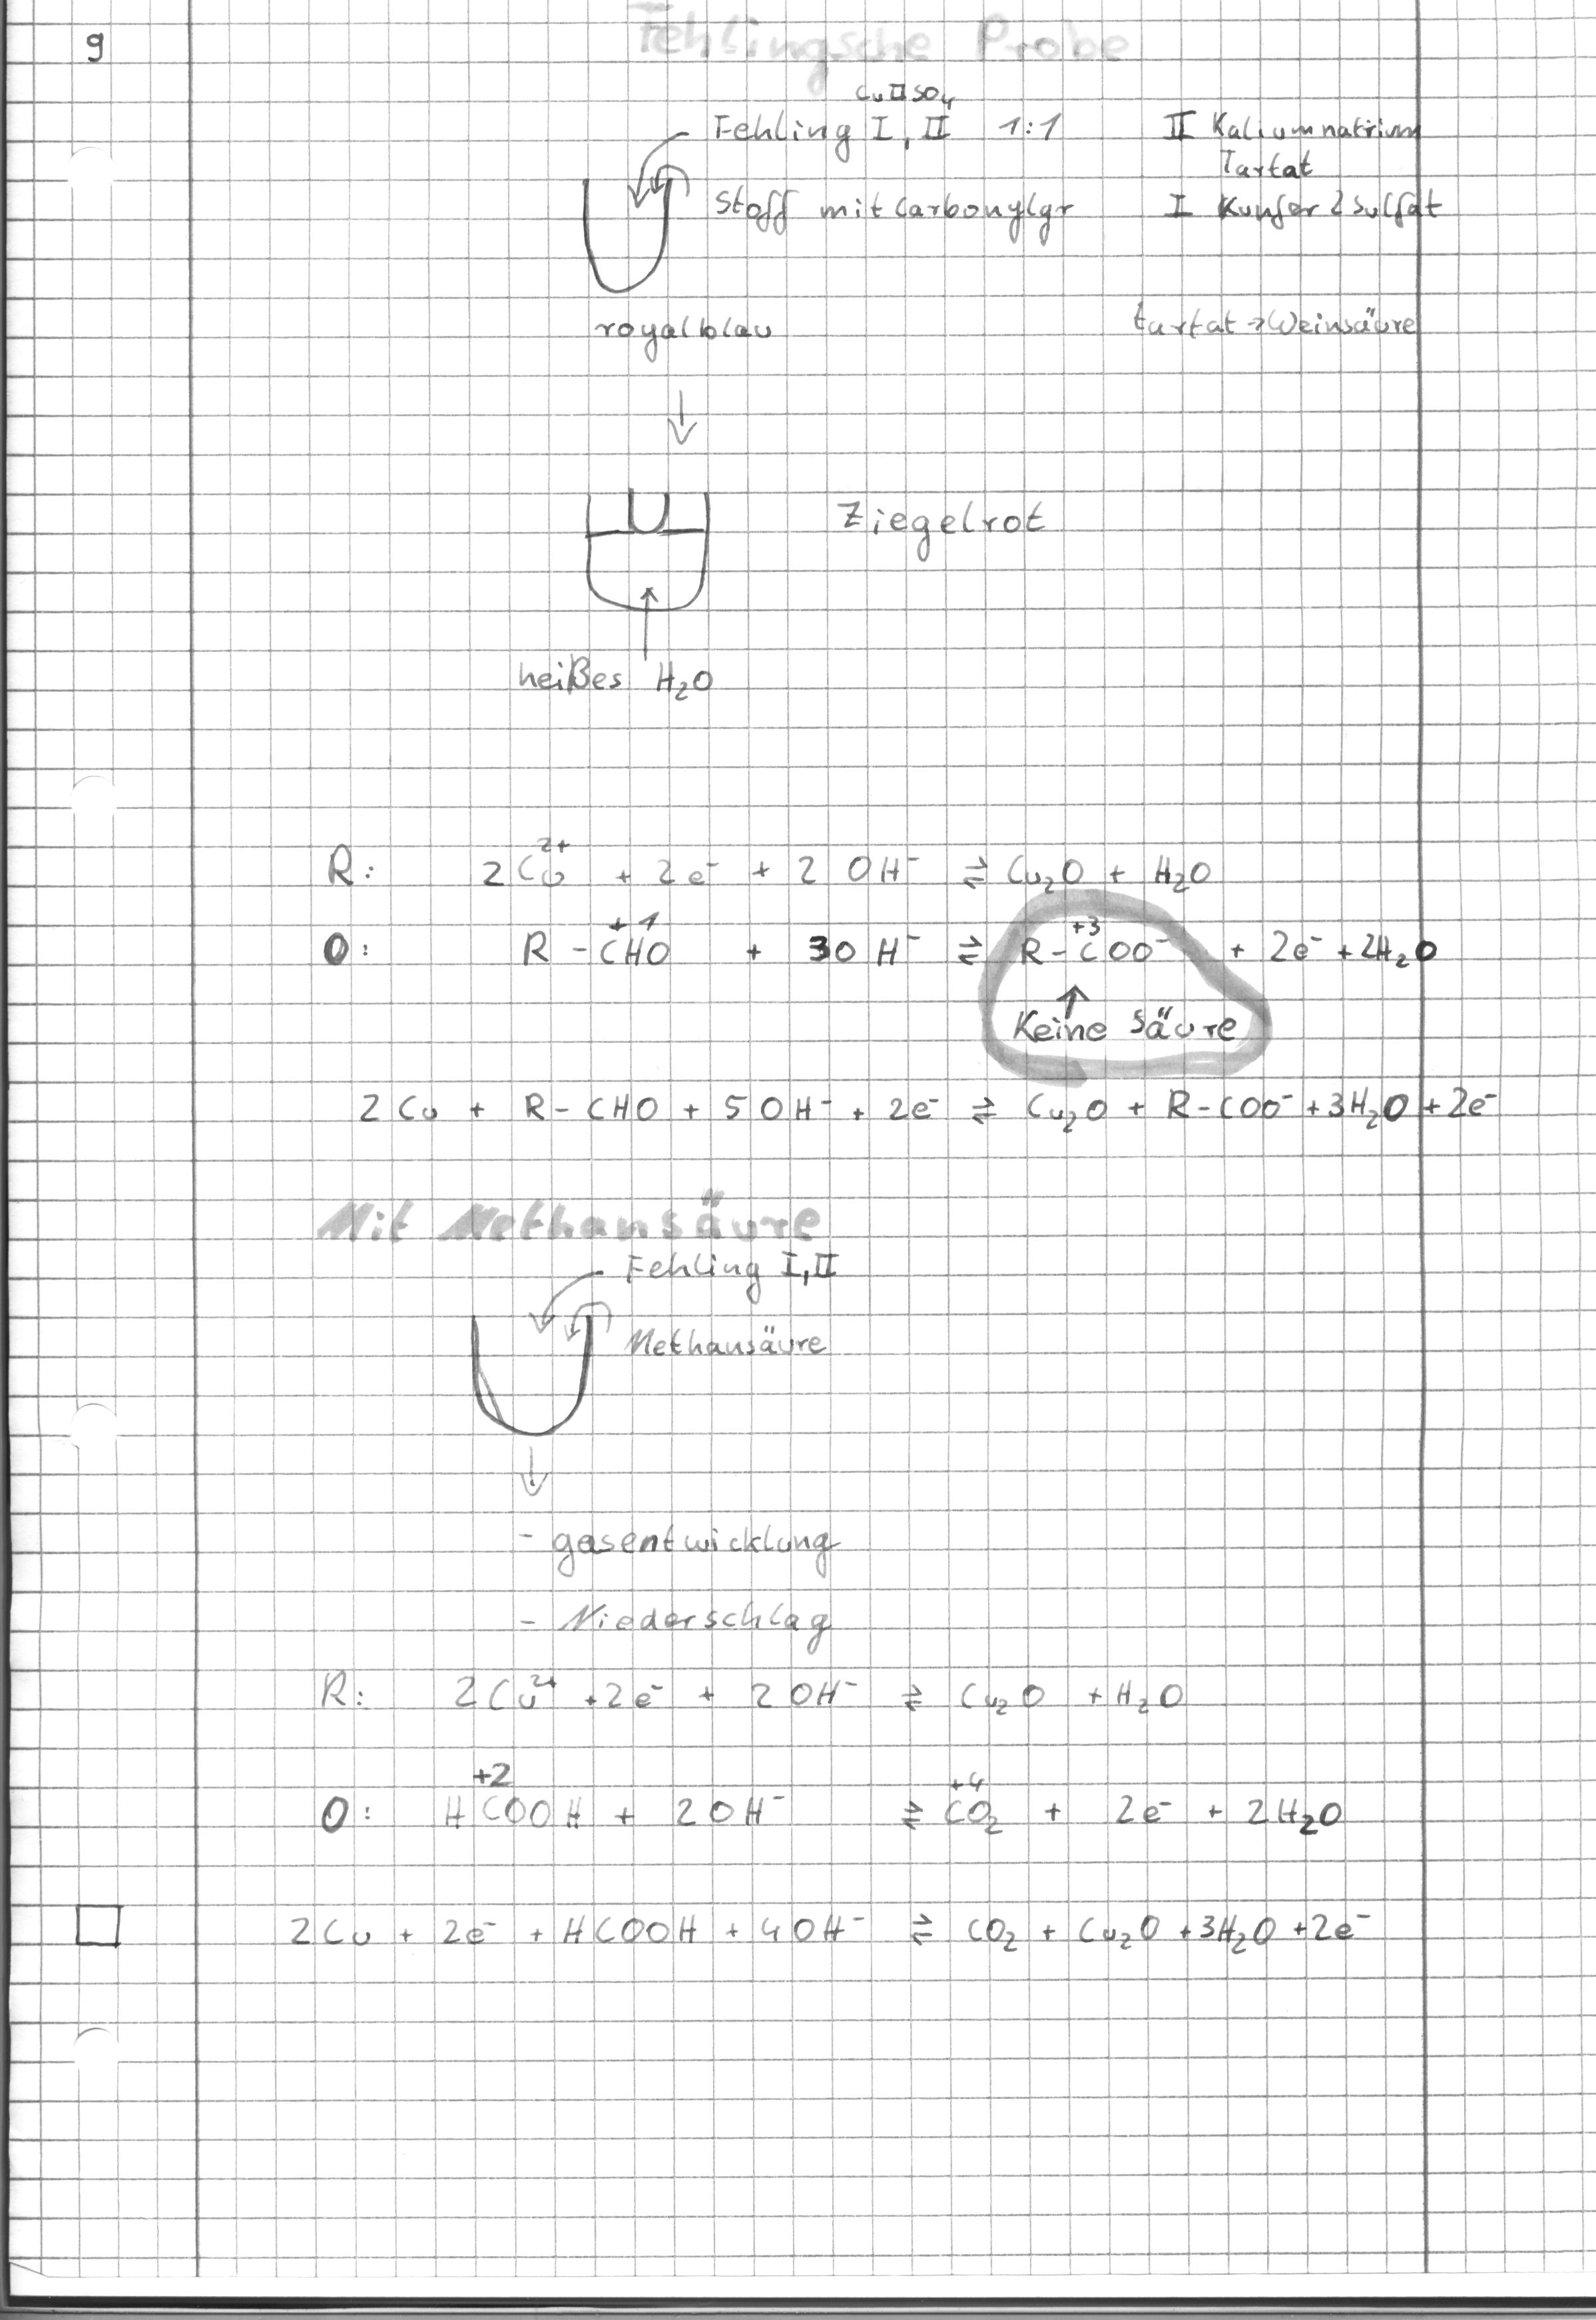 9
Fehlingsche Probe
CuIISO₄
Fehling I, II 1:1
II Kaliumnatrium
Tartat
Stoff mit Carbonylgr
I Kupfer 2 Sulfat
royalblau
tartat → Weinsäure
Ziegelrot
heißes H₂O
R: 2 Cu²⁺ + 2e⁻ + 2 OH⁻ ⇌ Cu₂O + H₂O
+1 +3
O: R - CHO + 3OH⁻ ⇌ R - COO⁻ + 2e⁻ + 2H₂O
Keine Säure
2 Cu + R - CHO + 5 OH⁻ + 2e⁻ ⇌ Cu₂O + R - COO⁻ + 3H₂O + 2e⁻
Mit Methansäure
Fehling I, II
Methansäure
- gasentwicklung
- Niederschlag
R: 2 Cu²⁺ + 2e⁻ + 2 OH⁻ ⇌ Cu₂O + H₂O
+2 +4
O: HCOOH + 2OH⁻ ⇌ CO₂ + 2e⁻ + 2H₂O
2 Cu + 2e⁻ + HCOOH + 4OH⁻ ⇌ CO₂ + Cu₂O + 3H₂O + 2e⁻